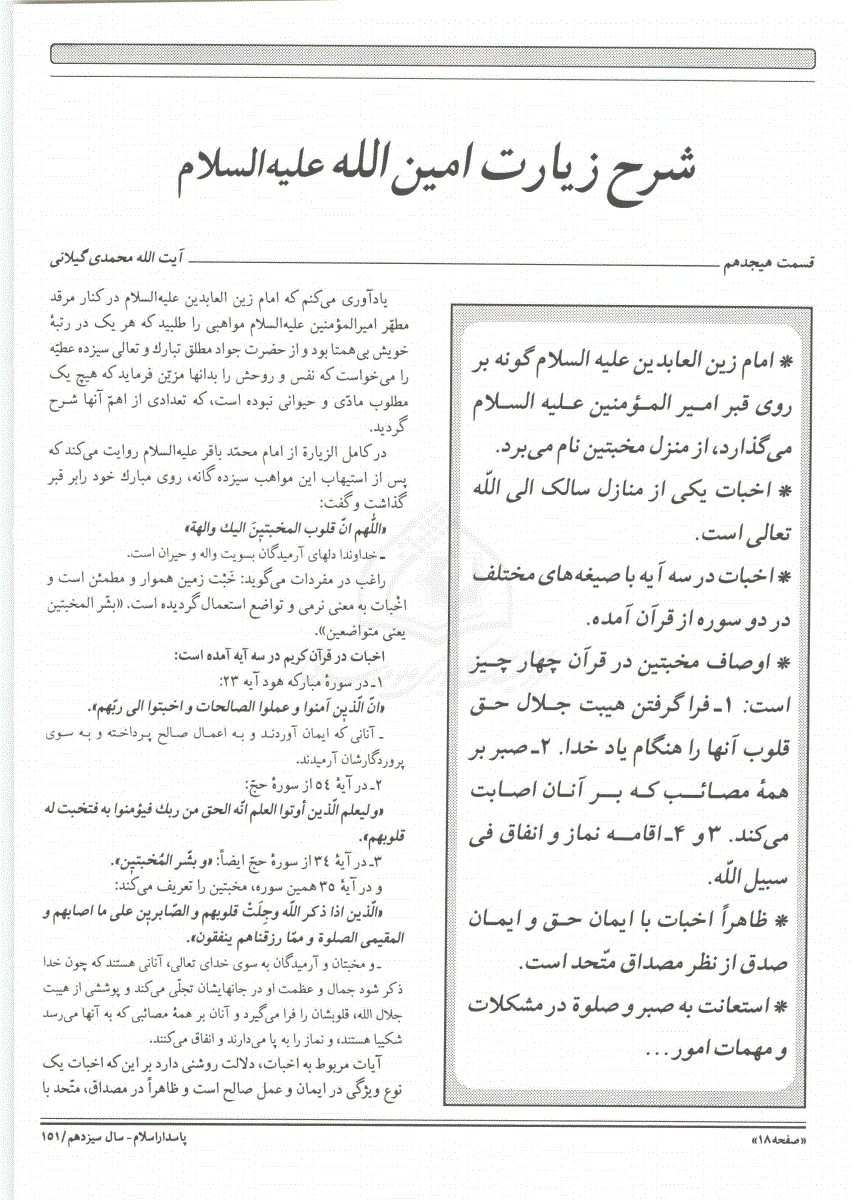 شرح زیارت امین الله علیه‌السلام
قسمت هیجدهم
آیت الله محمدی گیلانی
* امام زین العابدین علیه السلام گونه بر
روی قبر امیر المؤمنین علیه السلام
می‌گذارد، از منزل مخبتین نام می‌برد.
* اخبات یکی از منازل سالک الی الله
تعالی است.
* اخبات در سه آیه با صیغه‌های مختلف
در دو سوره از قرآن آمده.
* اوصاف مخبتین در قرآن چهار چیز
است: ۱ـ فرا گرفتن هیبت جلال حق
قلوب آنها را هنگام یاد خدا. ۲ـ صبر بر
همهٔ مصائب که بر آنان اصابت
می‌کند. ۳ و ۴ـ اقامه نماز و انفاق فی
سبیل اللّه.
* ظاهراً اخبات با ایمان حق و ایمان
صدق از نظر مصداق متّحد است.
* استعانت به صبر و صلوة در مشکلات
و مهمات امور...
یادآوری می‌کنم که امام زین العابدین علیه‌السلام در کنار مرقد
مطهّر امیرالمؤمنین علیه‌السلام مواهبی را طلبید که هر یک در رتبهٔ
خویش بی‌همتا بود و از حضرت جواد مطلق تبارك و تعالی سیزده عطیّه
را می‌خواست که نفس و روحش را بدانها مزیّن فرماید که هیچ یک
مطلوب مادّی و حیوانی نبوده است، که تعدادی از اهمّ آنها شرح
گردید.
در کامل الزیارة از امام محمّد باقر علیه‌السلام روایت می‌کند که
پس از استیهاب این مواهب سیزده گانه، روی مبارك خود رابر قبر
گذاشت و گفت:
«اللّهم انّ قلوب المخبتینَ الیك والهة»
ـ خداوندا دلهای آرمیدگان بسویت واله و حیران است.
راغب در مفردات می‌گوید: خَبْت زمین هموار و مطمئن است و
اخْبات به معنی نرمی و تواضع استعمال گردیده است. «بشّر المخبتین
یعنی متواضعین».
اخبات در قرآن کریم در سه آیه آمده است:
۱ـ در سورهٔ مبارکه هود آیه ۲۳:
«انّ الّذین آمنوا و عملوا الصالحات و اخبتوا الی ربّهم».
ـ آنانی که ایمان آوردند و به اعمال صالح پرداخته و به سوی
پروردگارشان آرمیدند.
۲ـ در آیهٔ ۵۴ از سورهٔ حجّ:
«و لیعلم الّذین أوتوا العلم انّه الحق من ربك فیؤمنوا به فتخبت له
قلوبهم».
۳ـ در آیهٔ ۳۴ از سورهٔ حجّ ایضاً: «و بشّر المُخبتین».
و در آیهٔ ۳۵ همین سوره، مخبتین را تعریف می‌کند:
«الّذین اذا ذکر اللّه وجِلَتْ قلوبهم و الصّابرین علی ما اصابهم و
المقیمی الصلوة و ممّا رزقناهم ینفقون».
ـ و مخبتان و آرمیدگان به سوی خدای تعالی، آنانی هستند که چون خدا
ذکر شود جمال و عظمت او در جانهایشان تجلّی می‌کند و پوششی از هیبت
جلال الله، قلوبشان را فرا می‌گیرد و آنان بر همهٔ مصائبی که به آنها می‌رسد
شکیبا هستند، و نماز را به پا می‌دارند و انفاق می‌کنند.
آیات مربوط به اخبات، دلالت روشنی دارد بر این که اخبات یک
نوع ویژگی در ایمان و عمل صالح است و ظاهراً در مصداق، متّحد با
«صفحه ۱۸»
پاسدار اسلام - سال سیزدهم/۱۵۱